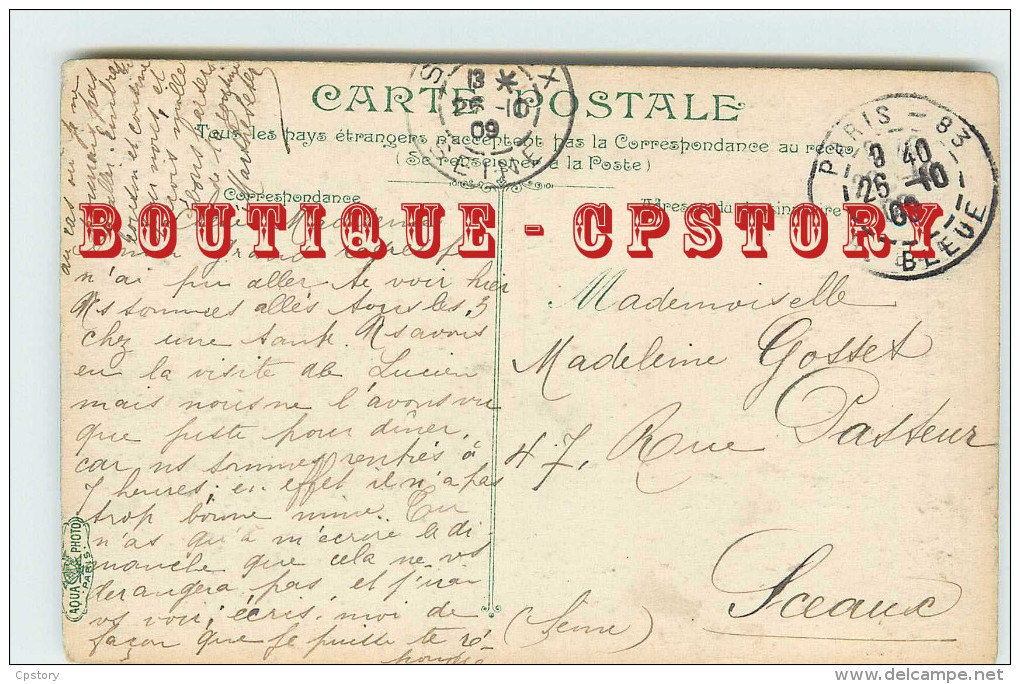 CARTE POSTALE
Tous les pays étrangers n'acceptent pas la Correspondance au recto
(Se renseigner à la Poste)
Correspondance
13 *
25 -10
09
SCEAUX
SEINE
PARIS - 83
9 40
26 -10
09
BLEUE
BOUTIQUE - CPSTORY
Madeleine
mon grand regret je
n'ai pu aller te voir hier
Ns sommes allés tous les 3
chez une tante. Ns avons
eu la visite de Lucien
mais nous ne l'avons vu
que juste pour dîner,
car ns sommes rentrés à
7 heures, en effet il n'a pas
trop bonne mine. Tu
n'as qu'à m'écrire le di
manche que cela ne vs
derangera pas et j'irai
vs voir, écris-moi de
façon que je puisse te ré-
pondre
au cas où je ne
pas
aller. Embrasse
et
et
Mademoiselle
Madeleine Gosset
47, Rue Pasteur
Sceaux
(Seine)
AQUA PHOTO
PARIS
Cpstory
www.delcampe.net